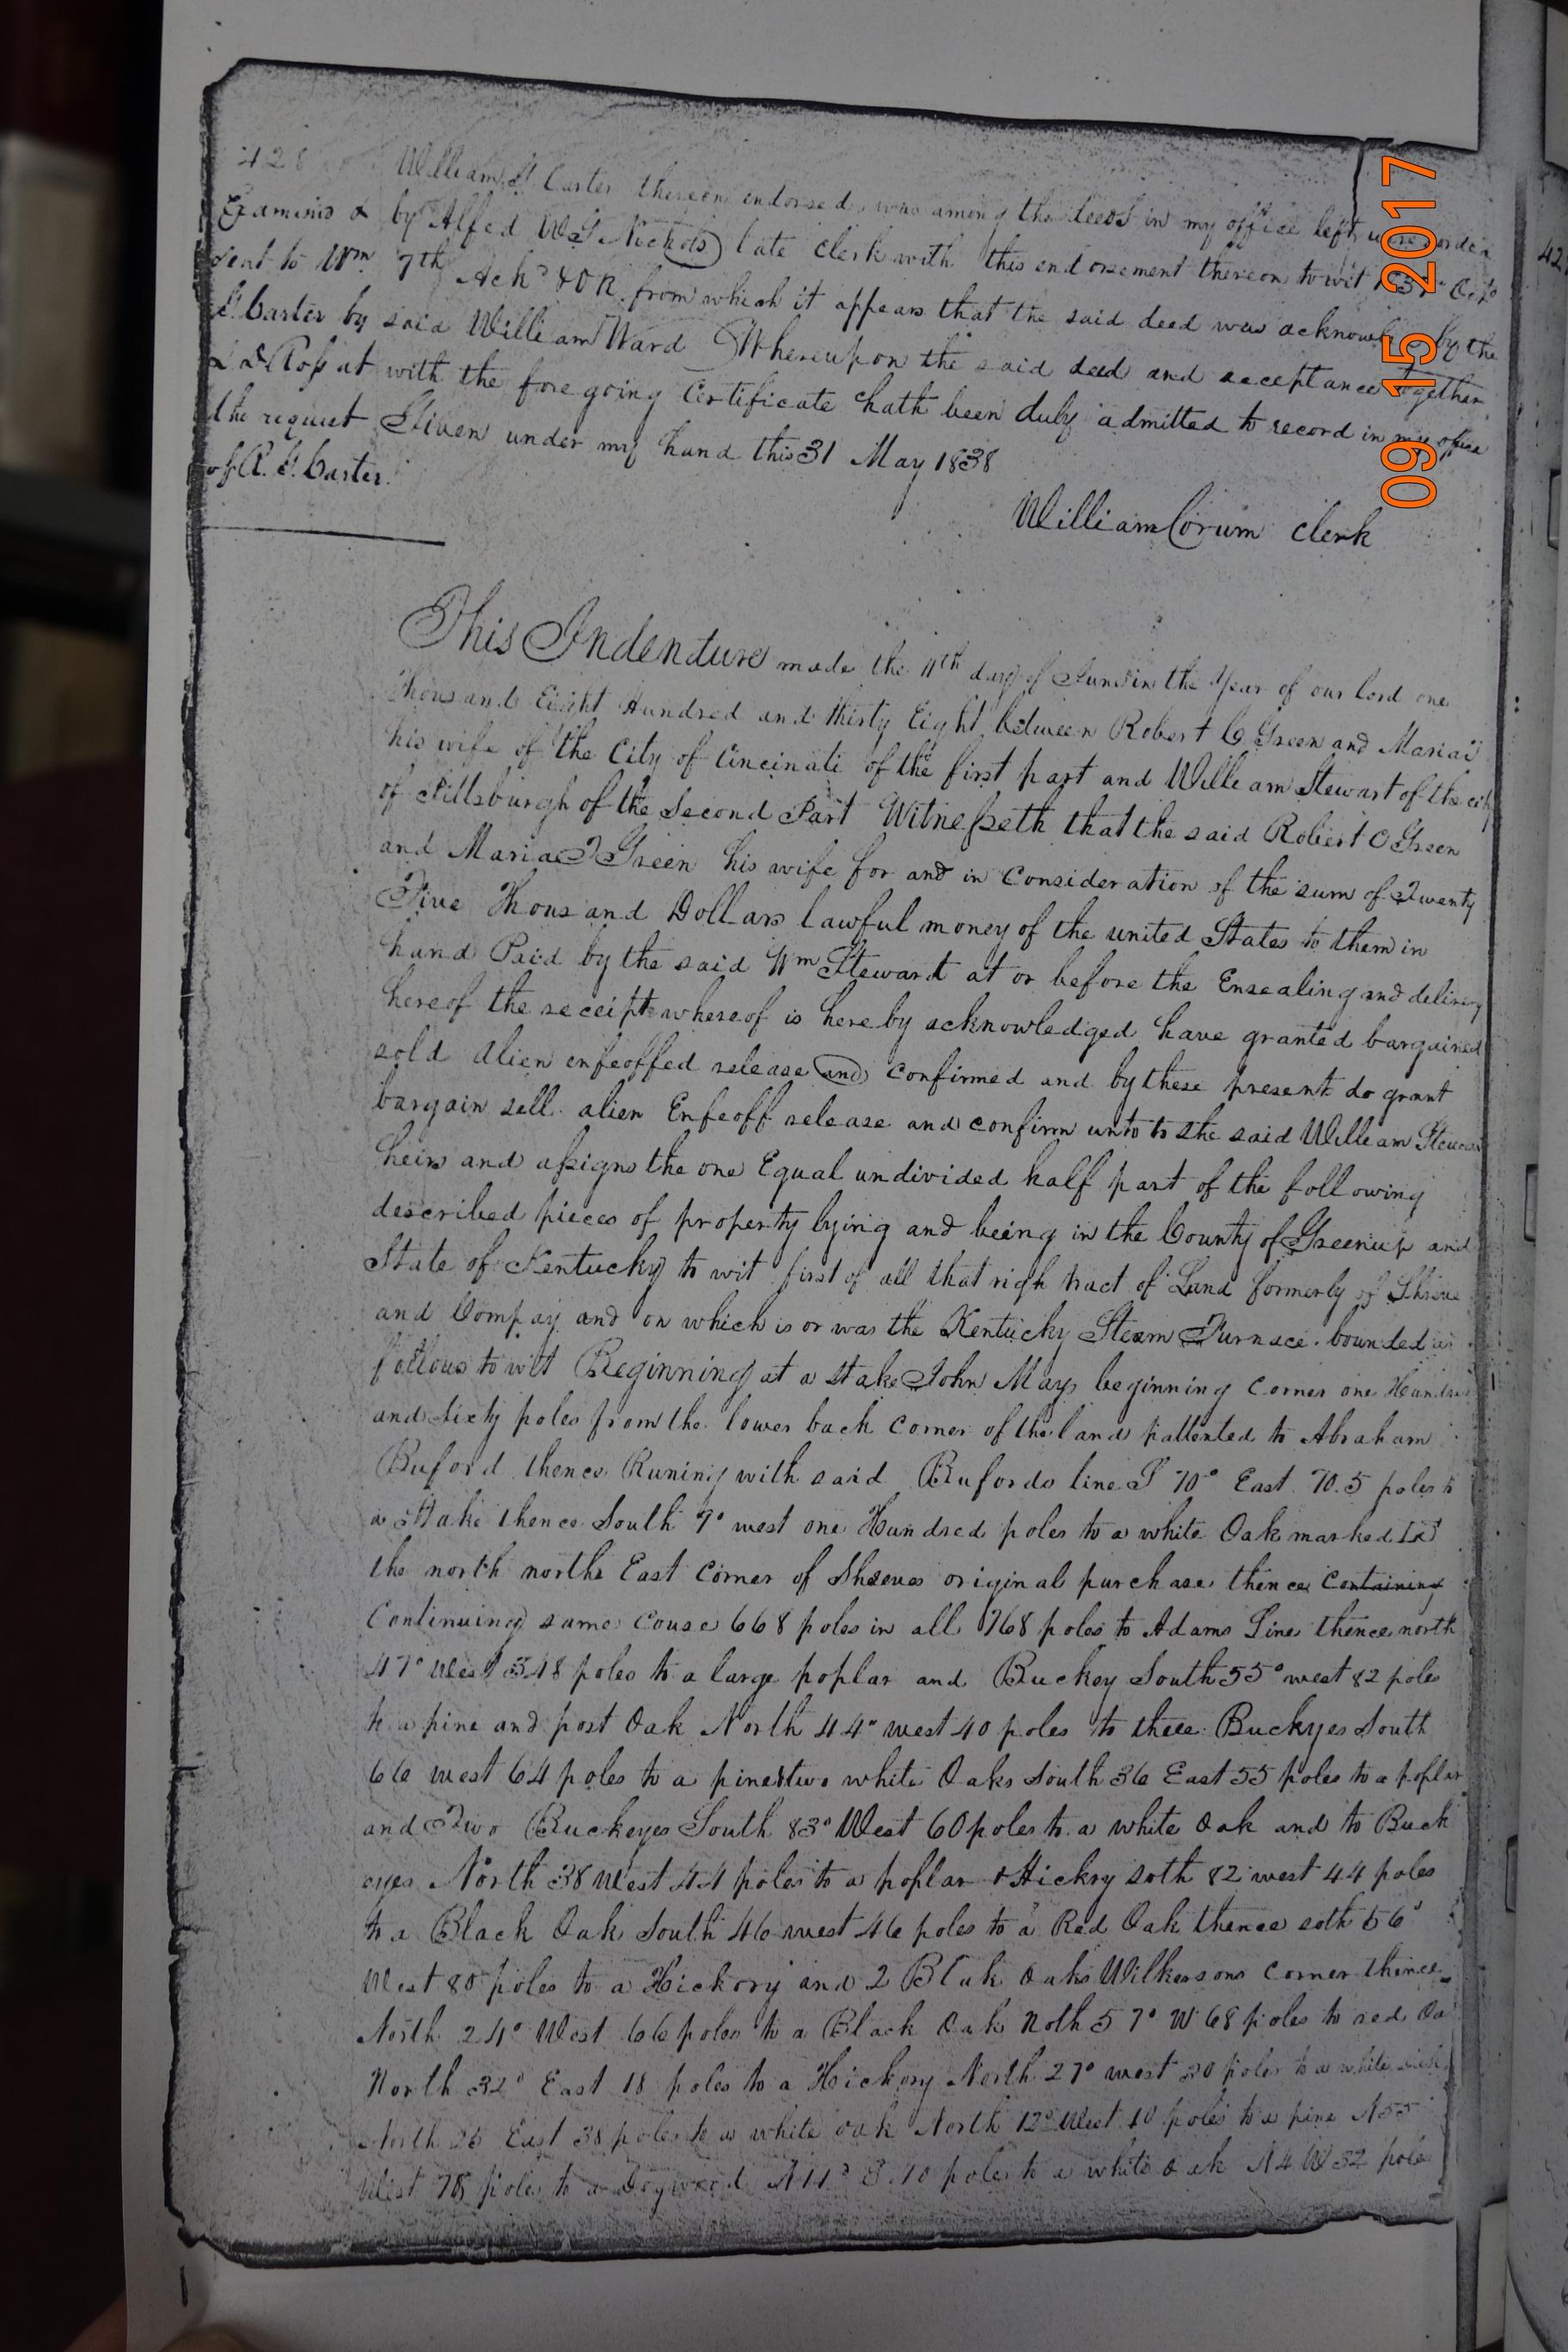 428
William S Carter thereon endorsed, was among the deeds in my office left
Examined & by Alfred W G Nickols late clerk with this endorsement thereon to wit
sent to Wm 7th Ackd & OR. from which it appears that the said deed was by the
S. Carter by said William Ward Whereupon the said deed and acceptance together
at with the foregoing Certificate hath been duly admitted to record in my office
the request Given under my hand this 31 May 1838
of R. S. Carter.
William Corum Clerk
This Indenture made the 11th day of June in the year of our lord one
Thousand Eight Hundred and thirty Eight between Robert C Green and Maria
his wife of the City of Cincinati of the first part and William Stewart of the city
of Pittsburgh of the Second Part Witnesseth that the said Robert C Green
and Maria Green his wife for and in Consideration of the sum of Twenty
Five Thousand Dollars lawful money of the united States to them in
hand Paid by the said Wm Steward at or before the Ensealing and delivery
hereof the receipt whereof is hereby acknowledged have granted bargained
sold alien enfeoffed release and confirmed and by these present do grant
bargain sell alien Enfeoff release and confirm unto to the said William
heirs and assigns the one Equal undivided half part of the following
described pieces of property lying and being in the County of Greenup and
State of Kentucky to wit first of all that righ tract of Land formerly of Shreve
and Compay and on which is or was the Kentucky Steam Furnace bounded as
follows to wit Beginning at a stake John Mays beginning corner one Hundred
and sixty poles from the lower back corner of the land pattented to Abraham
Buford thence Runing with said Bufords line S 70° East 70.5 poles to
a Stake thence South 7° west one Hundred poles to a white Oak marked
the north northe East Corner of Shreves original purchase thence Containing
Continuing same couse 668 poles in all 768 poles to Adams Line thence north
47° West 348 poles to a large poplar and Buckey South 55° west 82 poles
to a pine and post Oak North 44° west 40 poles to three Buckyes South
66 west 64 poles to a pine & two white Oaks South 36 East 55 poles to a poplar
and Two Buckeyes South 83° West 60 poles to a white Oak and to Buck
eyes North 38 West 44 poles to a poplar & Hickry soth 82 west 44 poles
to a Black Oak South 46 west 46 poles to a Red Oak thence soth 56°
West 80 poles to a Hickory and 2 Blak Oaks Wilkersons corner thence
North 24° West 66 poles to a Black Oak Noth 57° W 68 poles to red Oa
North 32° East 18 poles to a Hickory North 27° west 20 poles to a white
North 26 East 38 poles to a white oak North 12° West 10 poles to a pine N 55
West 78 poles to a Dogwood N 11° E 10 poles to a white Oak N 4 W 32 poles
09 15 2017